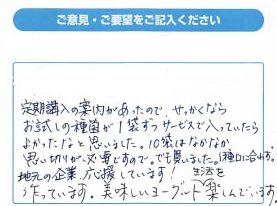 ご意見・ご要望をご記入ください
定期購入の案内があったので、せっかくなら
お試しの種菌が1袋ずつサービスで入っていたら
よかったなと思いました。10袋はなかなか
思い切りが必要ですので。でも買いました。(種口に合わず。
地元の企業、応援しています! 生活を
作っています。美味しいヨーグルト楽しんでいます。